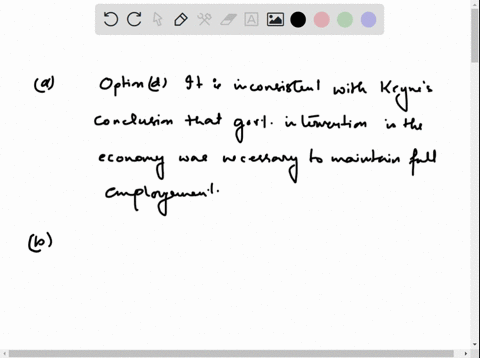 (a) Option (d) It is inconsistent with Keyne's
conclusion that govt. intervention in the
economy was necessary to maintain full
employement.
(b)